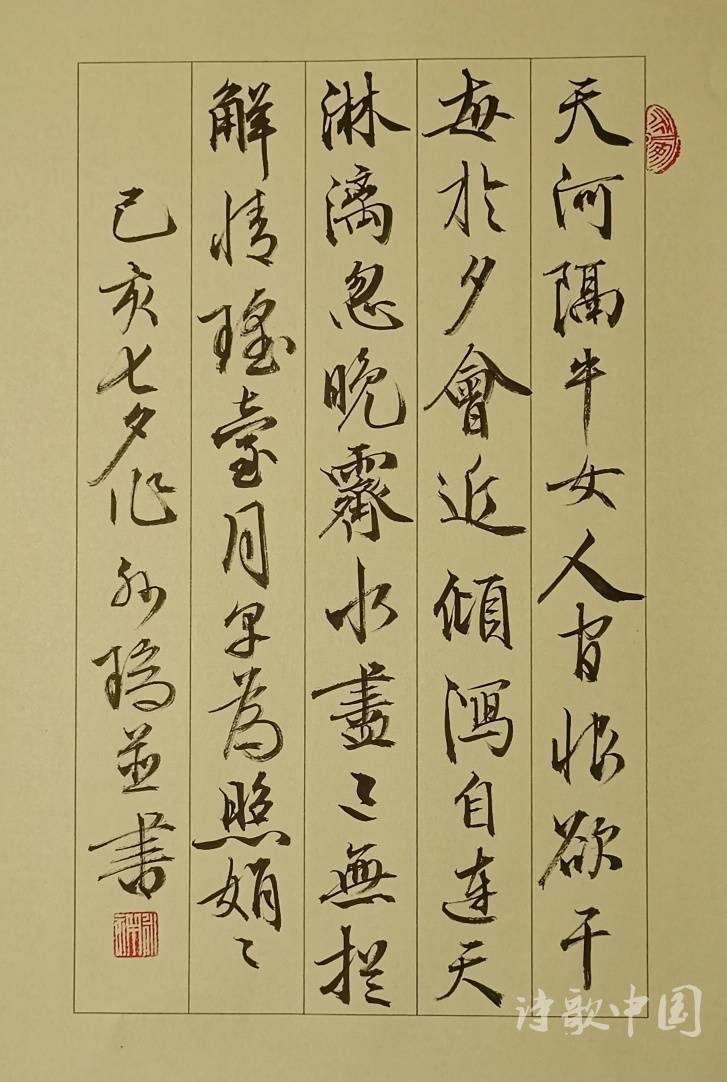 天河隔牛女人間恨欲干
每於夕會近傾瀉自連天
淋漓忽晚霽水盡々無拦
解情瑤臺月早為照娟々
己亥七夕作並書
诗歌中国